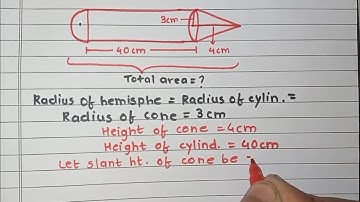 3cm
40cm
4cm
Total area = ?
Radius of hemisphe = Radius of cylin. =
Radius of cone = 3cm
Height of cone = 4cm
Height of cylind. = 40cm
Let slant ht. of cone be =